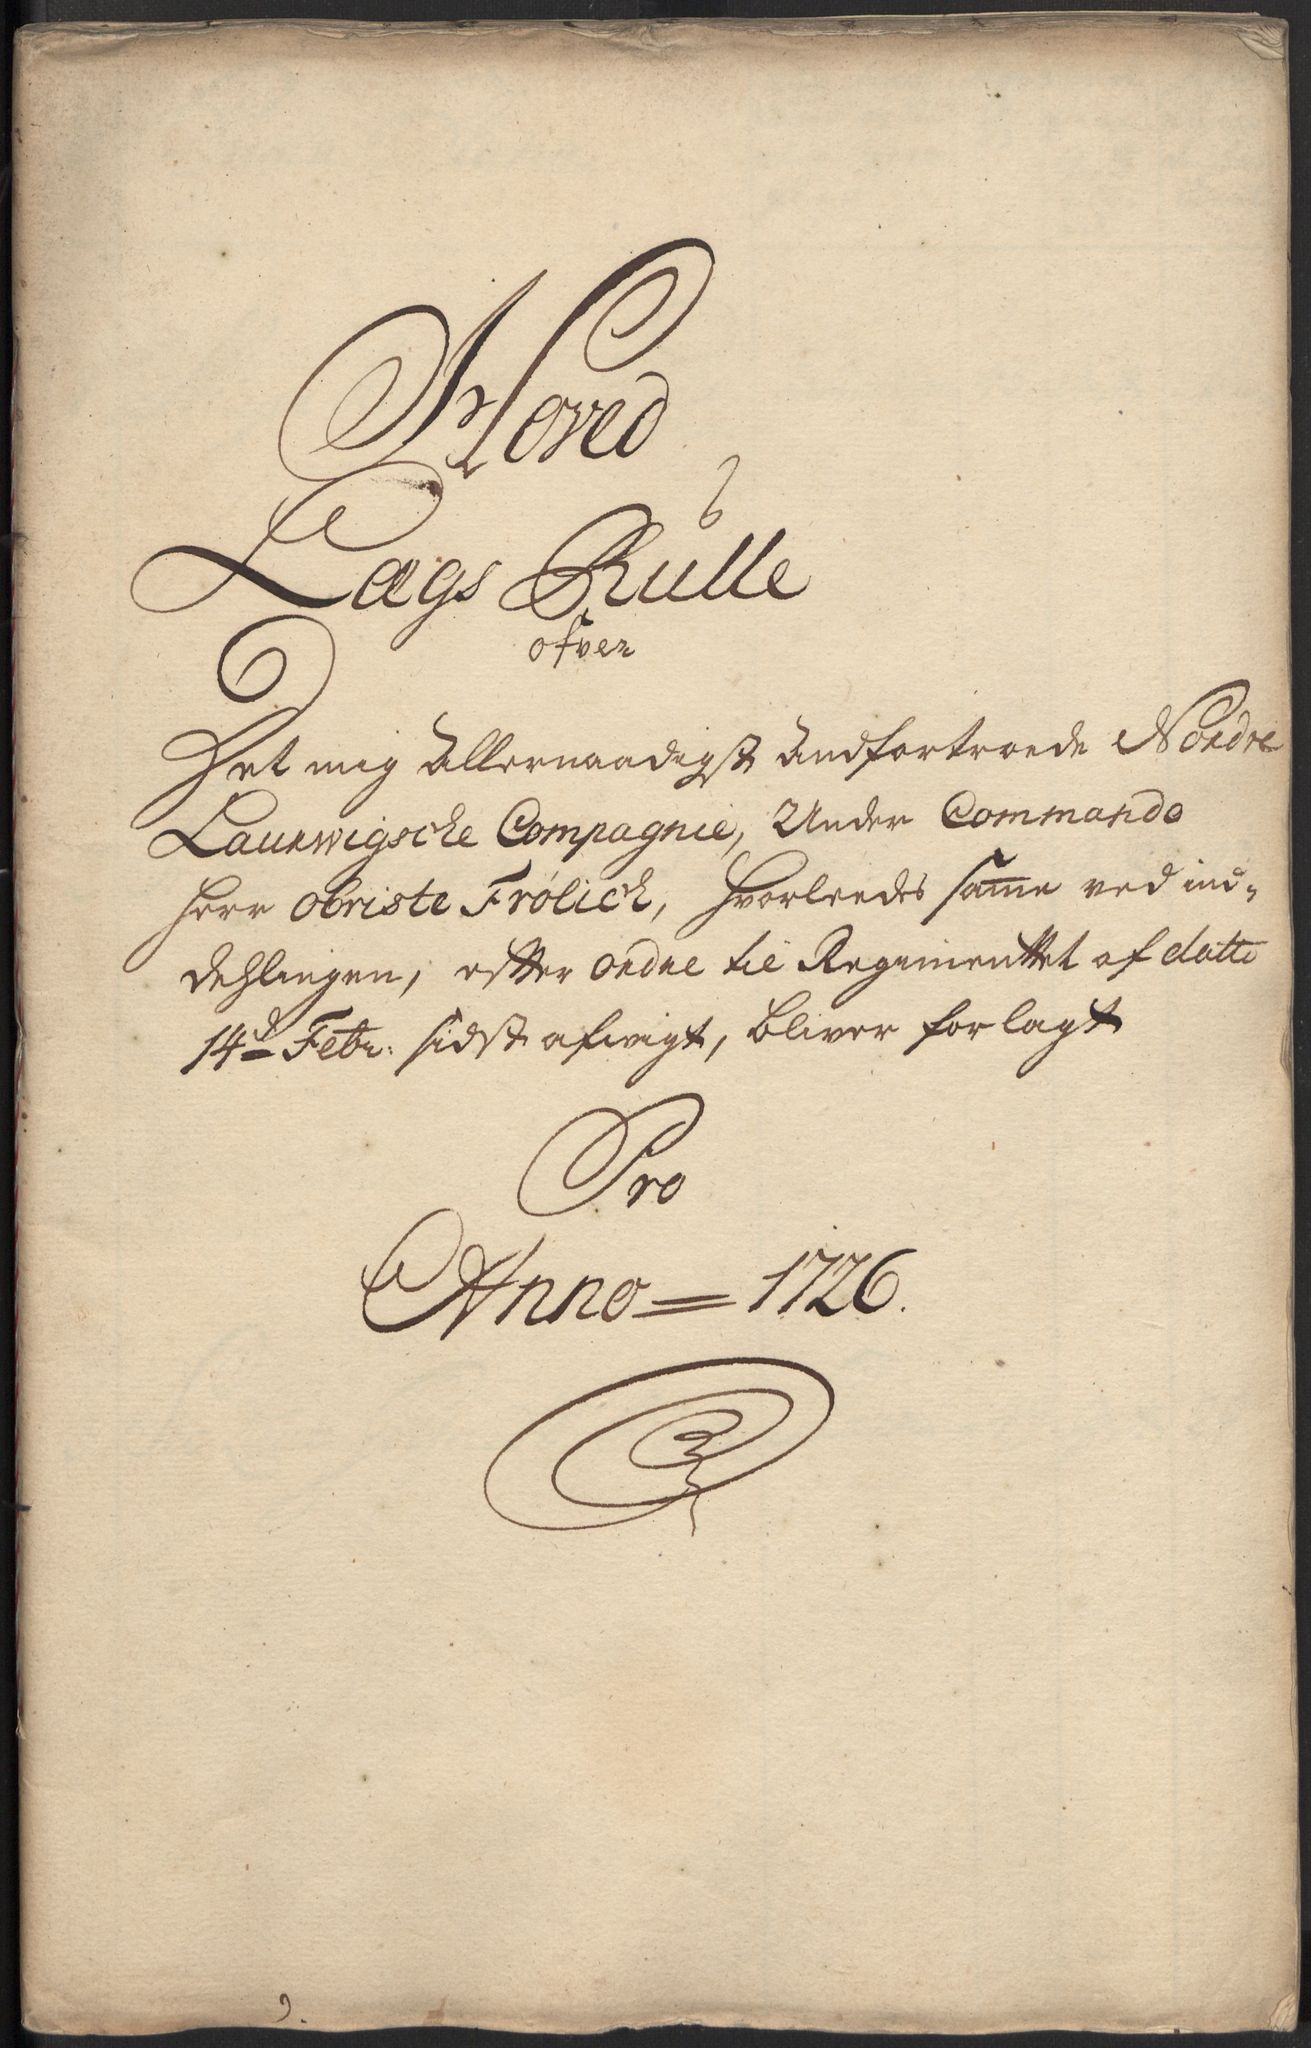 Hoved
Lægs Rulle
ofver
Det mig Allernaadigst Andfortroede Nordre
Laurwigsche Compagnie, Under Commando
Herr Obriste Frølich, Hvorleedes samme ved ind-
dehlingen, efter Ordre til Regimenttet af datto
14d Febr: sidst afvigt, bliver forlagt
Pro
Anno = 1726.